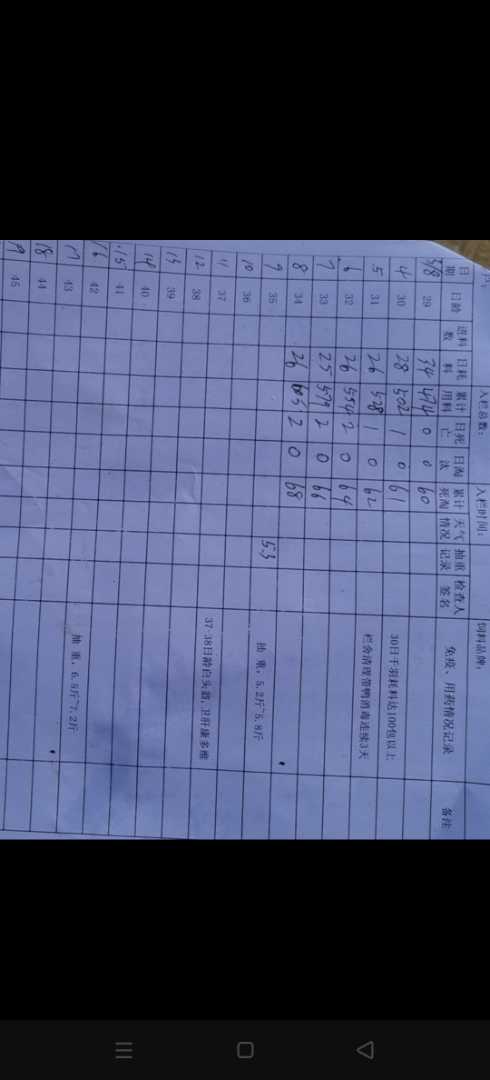 入栏总数： 入栏时间： 饲料品牌：
日期 日龄 进料数 日耗料 累计用料 日死亡 日淘汰 累计死淘 天气情况 抽重记录 检查人签名 免疫、用药情况记录 备注
3/8 29 34 474 0 0 60
4 30 28 502 1 0 61 30日千羽耗料达100包以上
5 31 26 528 1 0 62 栏舍清理带鸭消毒连续3天
6 32 26 554 2 0 64
7 33 25 579 2 0 66
8 34 26 605 2 0 68
9 35 5.3 抽 重，5.2斤~5.8斤
10 36
11 37
12 38 37-38日龄白头翁，卫肝康多维
13 39
14 40
15 41
16 42
17 43 抽 重，6.8斤~7.2斤
18 44
19 45